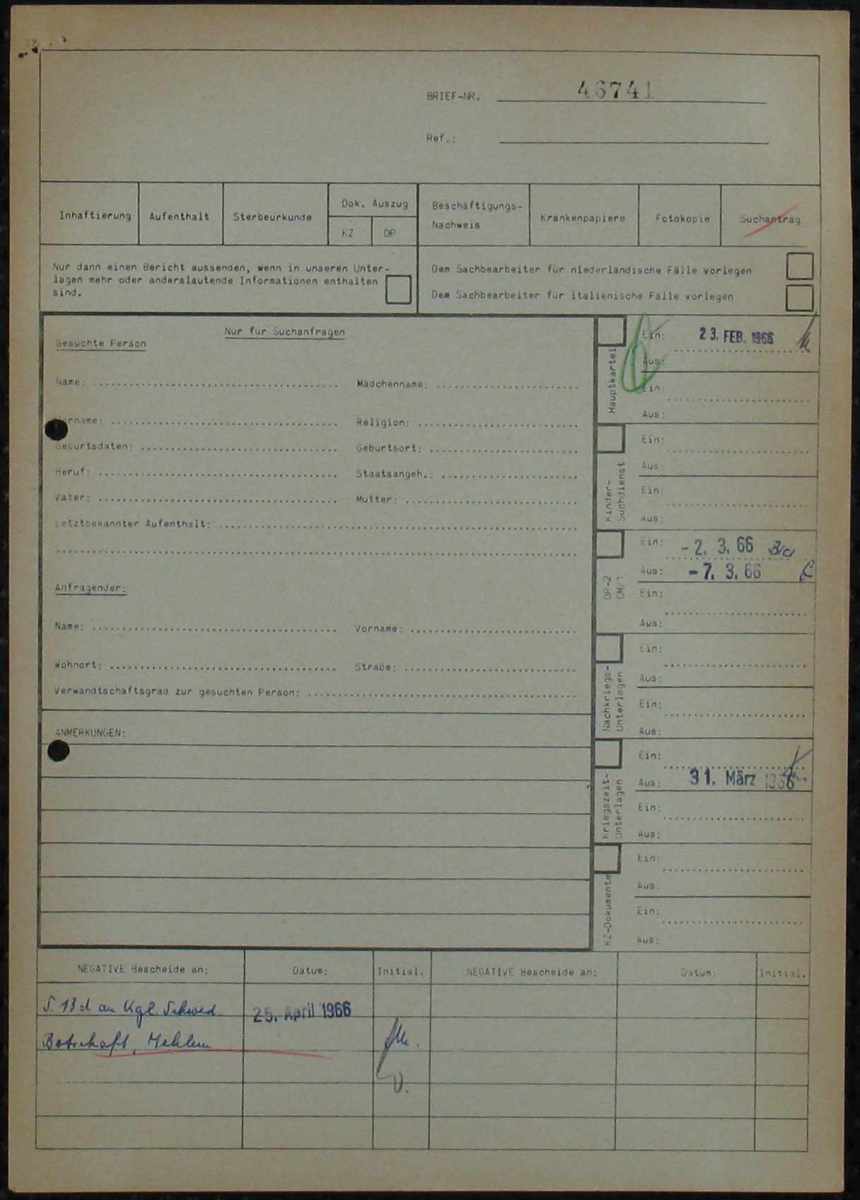 BRIEF-NR. 46741
Ref.:
Inhaftierung
Aufenthalt
Sterbeurkunde
Dok. Auszug
KZ
DP
Beschäftigungs-
Nachweis
Krankenpapiere
Fotokopie
Suchantrag
Nur dann einen Bericht aussenden, wenn in unseren Unter-
lagen mehr oder anderslautende Informationen enthalten
sind.
Dem Sachbearbeiter für niederländische Fälle vorlegen
Dem Sachbearbeiter für italienische Fälle vorlegen
Nur für Suchanfragen
Gesuchte Person
Name:
Mädchenname:
Vorname:
Religion:
Geburtsdaten:
Geburtsort:
Beruf:
Staatsangeh.:
Vater:
Mutter:
Letztbekannter Aufenthalt:
Anfragender:
Name:
Vorname:
Wohnort:
Straße:
Verwandtschaftsgrad zur gesuchten Person:
ANMERKUNGEN:
Hauptkartei
Ein: 23. FEB. 1966
Aus:
Ein:
Aus:
Kinder-
Suchdienst
Ein:
Aus:
Ein:
Aus:
DP-2
CM/1
Ein: -2. 3. 66
Aus: -7. 3. 66
Ein:
Aus:
Nachkriegs-
Unterlagen
Ein:
Aus:
Ein:
Aus:
Kriegszeit-
Unterlagen
Ein:
Aus: 31. März 1966
Ein:
Aus:
KZ-Dokumente
Ein:
Aus:
Ein:
Aus:
NEGATIVE Bescheide an:
Datum:
Initial.
NEGATIVE Bescheide an:
Datum:
Initial.
an Kgl. Schwed.
25. April 1966
Botschaft, Mehlem